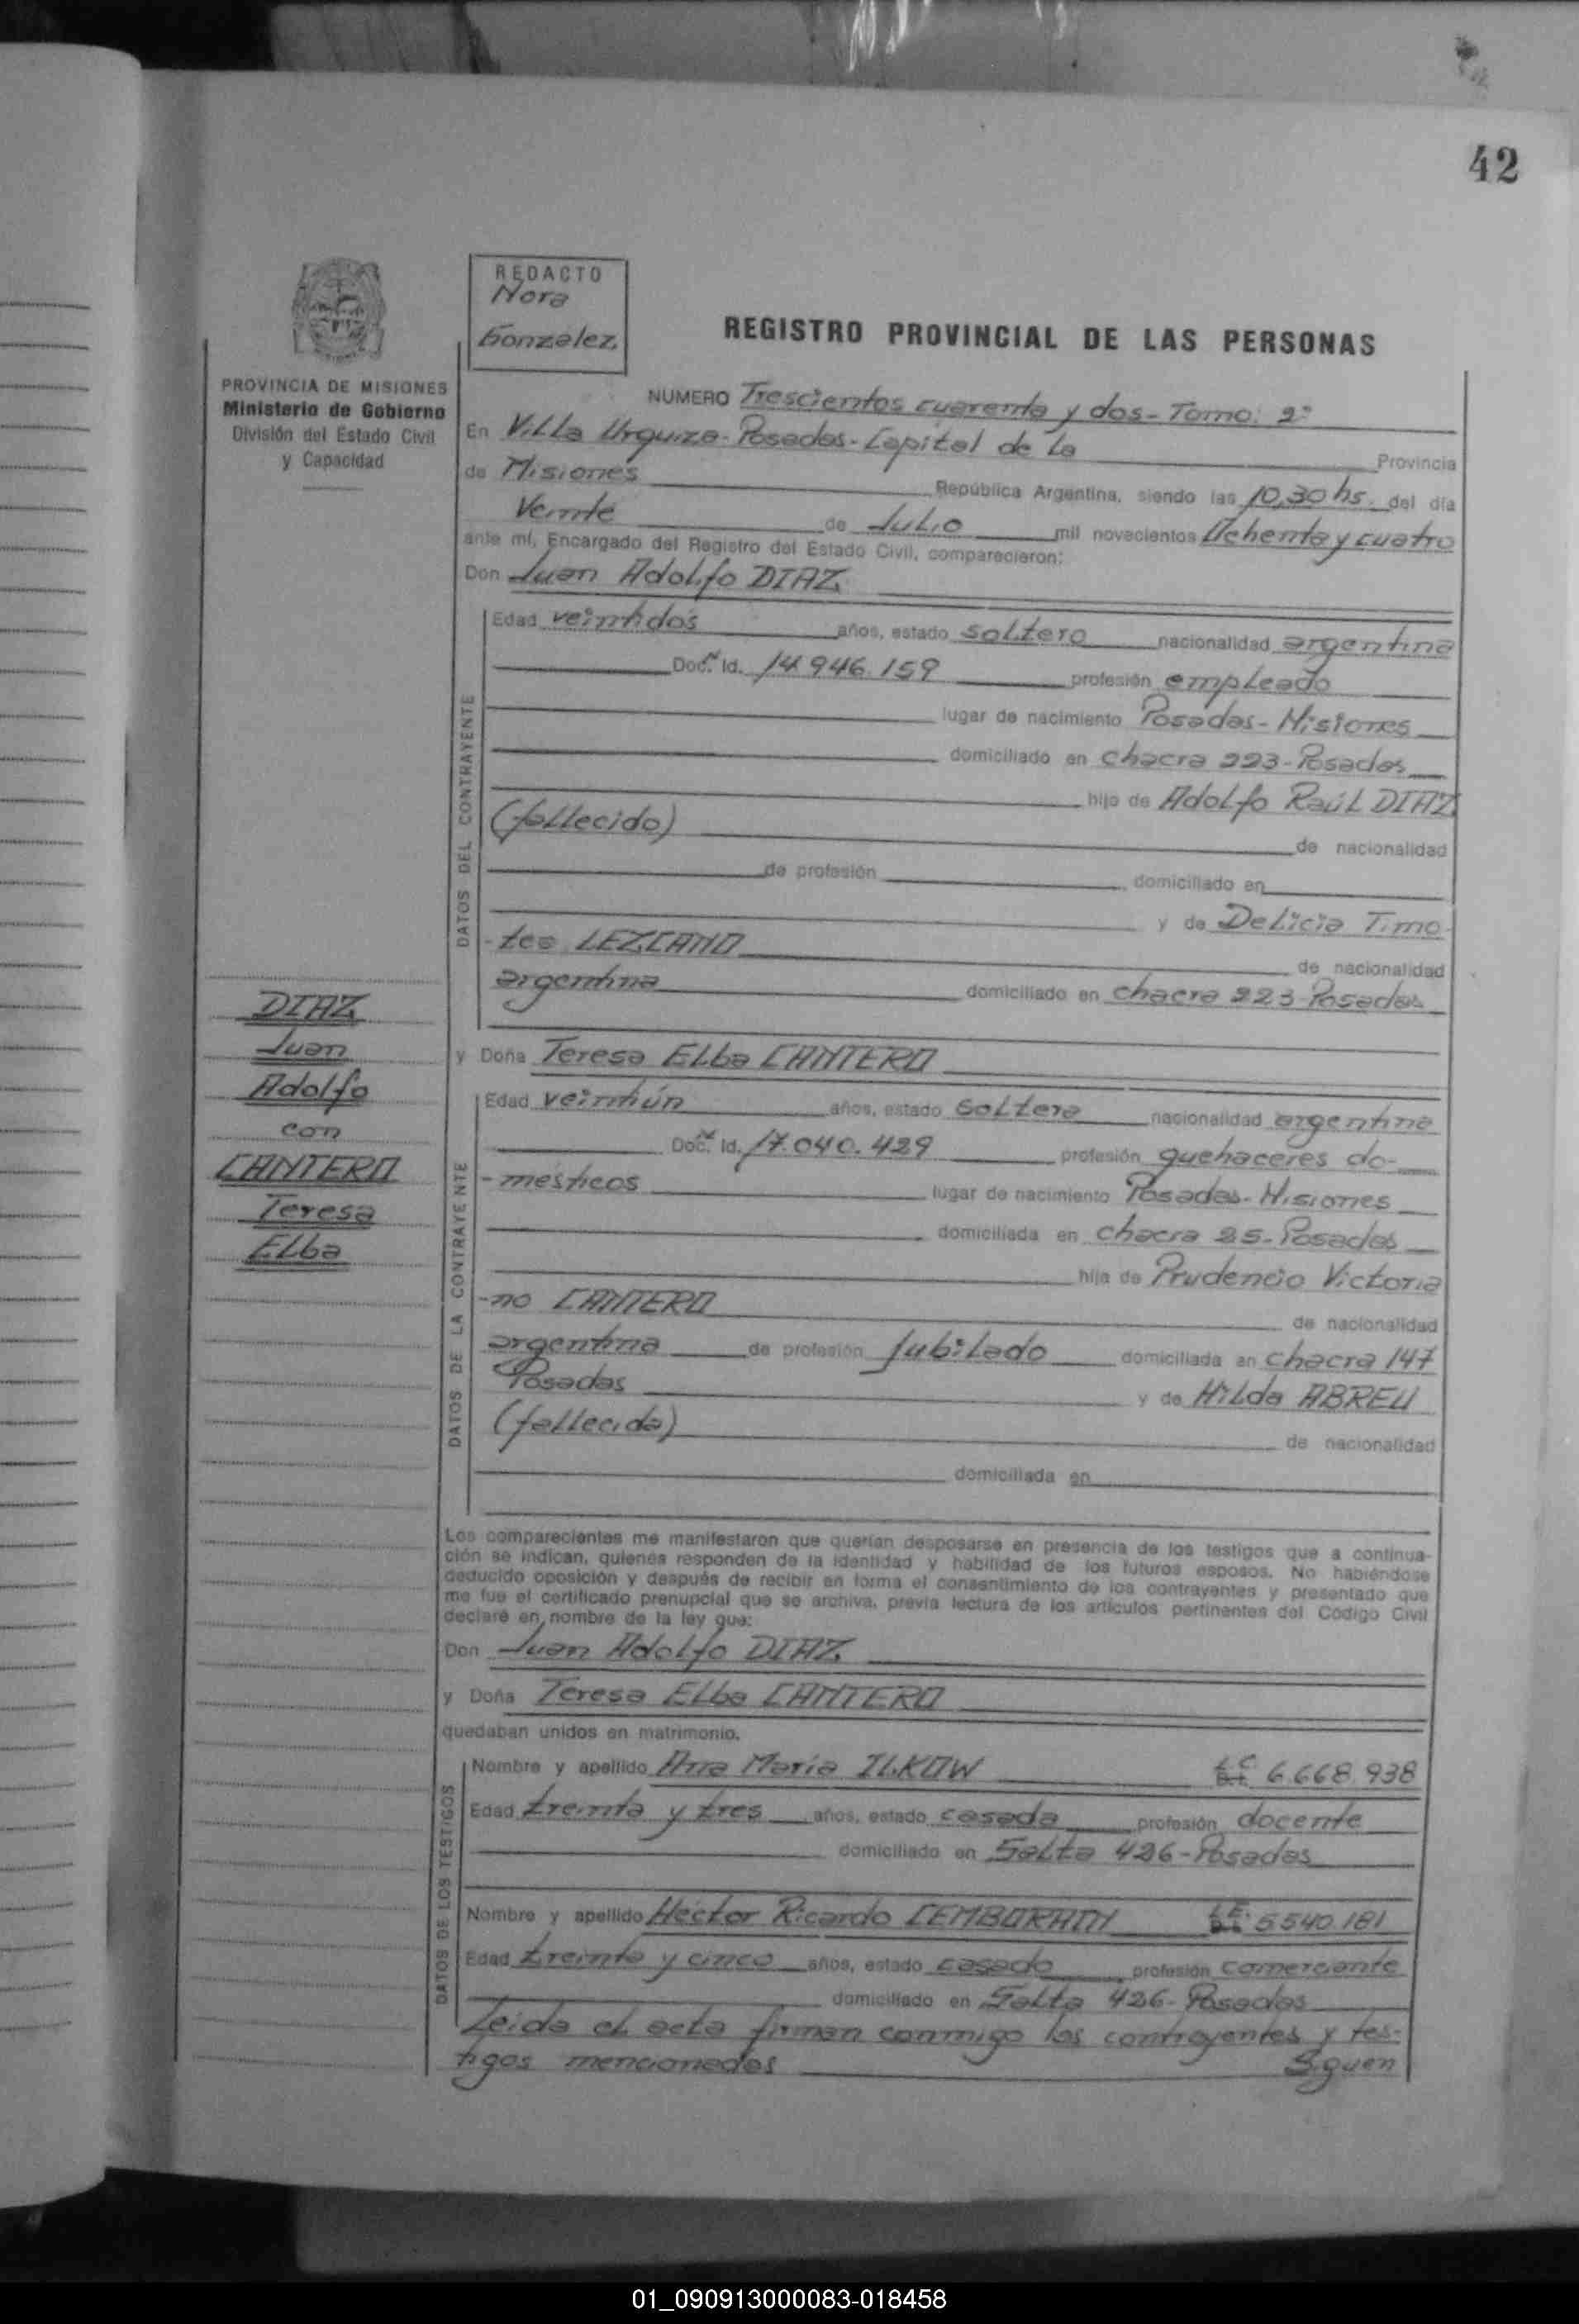 42
REDACTO
Nora
Gonzalez.
REGISTRO PROVINCIAL DE LAS PERSONAS
PROVINCIA DE MISIONES
Ministerio de Gobierno
División del Estado Civil
y Capacidad
NUMERO Trescientos cuarenta y dos - Tomo: 2º
En Villa Urquiza - Posadas - Capital de La Provincia
de Misiones República Argentina, siendo las 10,30 hs. del día
Veinte de Julio mil novecientos Ochenta y cuatro
ante mí, Encargado del Registro del Estado Civil, comparecieron:
Don Juan Adolfo DIAZ
DATOS DEL CONTRAYENTE
Edad veintidós años, estado soltero nacionalidad argentina
Doc. Id. 14.946.159 profesión empleado
lugar de nacimiento Posadas - Misiones
domiciliado en chacra 223 - Posadas
hijo de Adolfo Raúl DIAZ
(fallecido) de nacionalidad
de profesión domiciliado en
y de Delicia Timo-
-tea LEZCANO de nacionalidad
argentina domiciliado en chacra 223 - Posadas
DIAZ
Juan
Adolfo
con
CANTERO
Teresa
Elba
y Doña Teresa Elba CANTERO
DATOS DE LA CONTRAYENTE
Edad veintiún años, estado soltera nacionalidad argentina
Doc. Id. 17.040.429 profesión quehaceres do-
-mésticos lugar de nacimiento Posadas - Misiones
domiciliada en chacra 25 - Posadas
hija de Prudencio Victoria
-no CANTERO de nacionalidad
argentina de profesión jubilado domiciliada en chacra 147
Posadas y de Hilda ABREU
(fallecida) de nacionalidad
domiciliada en
Los comparecientes me manifestaron que querían desposarse en presencia de los testigos que a continua-
ción se indican, quienes responden de la identidad y habilidad de los futuros esposos. No habiéndose
deducido oposición y después de recibir en forma el consentimiento de los contrayentes y presentado que
me fue el certificado prenupcial que se archiva, previa lectura de los artículos pertinentes del Código Civil
declaré en nombre de la ley que:
Don Juan Adolfo DIAZ
y Doña Teresa Elba CANTERO
quedaban unidos en matrimonio.
DATOS DE LOS TESTIGOS
Nombre y apellido Ana María ILKOW L.C. 6.668.938
Edad treinta y tres años, estado casada profesión docente
domiciliado en Salta 426 - Posadas
Nombre y apellido Héctor Ricardo CEMBORAIN L.E. 5.540.181
Edad treinta y cinco años, estado casado profesión comerciante
domiciliado en Salta 426 - Posadas
Leida el acta firman conmigo los contrayentes y tes-
tigos mencionados Siguen
01_090913000083-018458